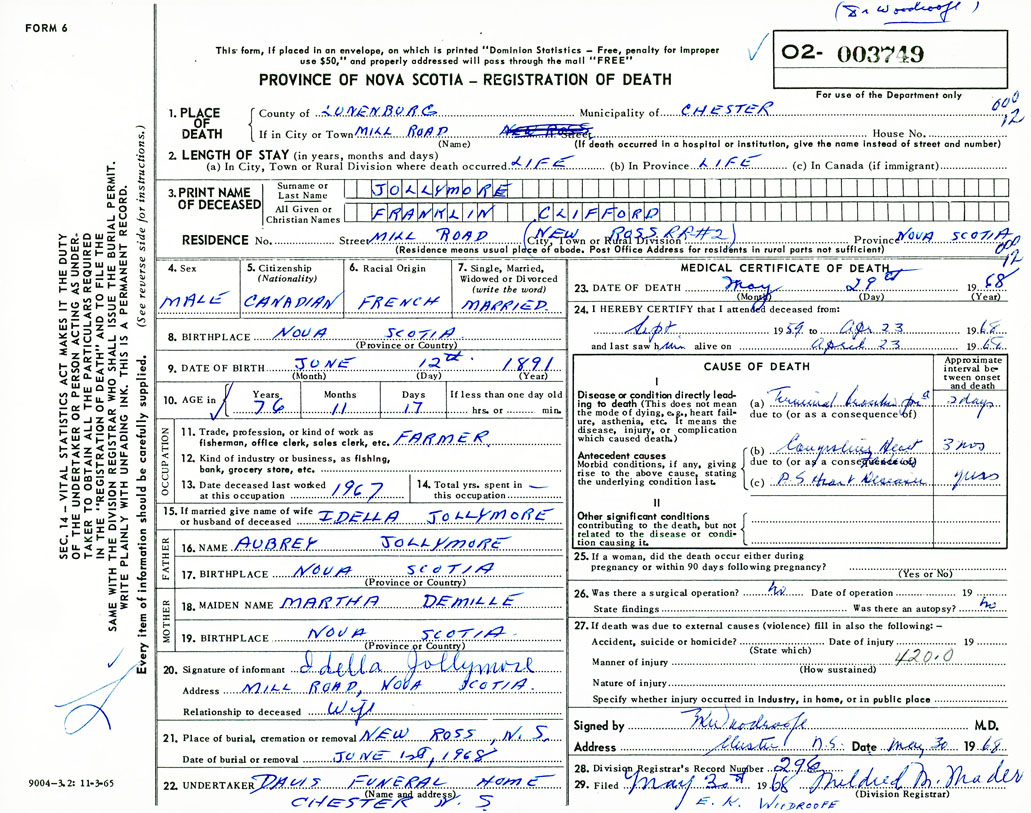 (Dr Woodroofe)
FORM 6
This form, if placed in an envelope, on which is printed "Dominion Statistics – Free, penalty for improper
use $50," and properly addressed will pass through the mail "FREE"
PROVINCE OF NOVA SCOTIA – REGISTRATION OF DEATH
O2- 003749
For use of the Department only
000
12
1. PLACE OF DEATH
County of LUNENBURG Municipality of CHESTER
If in City or Town MILL ROAD NEW ROSS Street House No.
(Name) (If death occurred in a hospital or institution, give the name instead of street and number)
2. LENGTH OF STAY (in years, months and days)
(a) In City, Town or Rural Division where death occurred LIFE (b) In Province LIFE (c) In Canada (if immigrant)
3. PRINT NAME OF DECEASED
Surname or Last Name JOLLYMORE
All Given or Christian Names FRANKLIN CLIFFORD
RESIDENCE No. Street MILL ROAD (NEW ROSS RR#2) City, Town or Rural Division Province NOVA SCOTIA
(Residence means usual place of abode. Post Office Address for residents in rural parts not sufficient)
000
12
4. Sex
MALE
5. Citizenship
(Nationality)
CANADIAN
6. Racial Origin
FRENCH
7. Single, Married,
Widowed or Divorced
(write the word)
MARRIED
8. BIRTHPLACE NOVA SCOTIA
(Province or Country)
9. DATE OF BIRTH JUNE 12th 1891
(Month) (Day) (Year)
10. AGE in Years Months Days If less than one day old
76 11 17 hrs. or min.
OCCUPATION
11. Trade, profession, or kind of work as
fisherman, office clerk, sales clerk, etc. FARMER
12. Kind of industry or business, as fishing,
bank, grocery store, etc.
13. Date deceased last worked
at this occupation 1967
14. Total yrs. spent in
this occupation –
15. If married give name of wife
or husband of deceased IDELLA JOLLYMORE
FATHER
16. NAME AUBREY JOLLYMORE
17. BIRTHPLACE NOVA SCOTIA
(Province or Country)
MOTHER
18. MAIDEN NAME MARTHA DEMILLE
19. BIRTHPLACE NOVA SCOTIA
(Province or Country)
20. Signature of informant Idella Jollymore
Address MILL ROAD, NOVA SCOTIA.
Relationship to deceased Wife
21. Place of burial, cremation or removal NEW ROSS, N.S.
Date of burial or removal JUNE 1st, 1968
22. UNDERTAKER DAVIS FUNERAL HOME
(Name and address)
CHESTER N. S
MEDICAL CERTIFICATE OF DEATH
23. DATE OF DEATH May 29th 1968
(Month) (Day) (Year)
24. I HEREBY CERTIFY that I attended deceased from:
Sept 1959 to Apr 23 1968
and last saw him alive on April 23 1968
CAUSE OF DEATH
Approximate
interval between
onset
and death
I
Disease or condition directly leading
to death (This does not mean
the mode of dying, e.g., heart failure,
asthenia, etc. It means the
disease, injury, or complication
which caused death.)
(a) Terminal 2 days
due to (or as a consequence of)
Antecedent causes
Morbid conditions, if any, giving
rise to the above cause, stating
the underlying condition last.
(b) Heart 3 mos
due to (or as a consequence of)
(c) Heart Disease years
II
Other significant conditions
contributing to the death, but not
related to the disease or condition
causing it.
25. If a woman, did the death occur either during
pregnancy or within 90 days following pregnancy?
(Yes or No)
26. Was there a surgical operation? no Date of operation 19
State findings Was there an autopsy? no
27. If death was due to external causes (violence) fill in also the following: –
Accident, suicide or homicide? Date of injury 19
(State which)
420.0
Manner of injury
(How sustained)
Nature of injury
Specify whether injury occurred in Industry, in home, or in public place
Signed by Woodroofe M.D.
Address Chester N.S. Date May 30 1968
28. Division Registrar's Record Number 296
29. Filed May 1968 Mildred M. Mader
(Division Registrar)
E. K. WOODROOFE
SEC. 14 – VITAL STATISTICS ACT MAKES IT THE DUTY
OF THE UNDERTAKER OR PERSON ACTING AS UNDERTAKER
TO OBTAIN ALL THE PARTICULARS REQUIRED
IN THE "REGISTRATION OF DEATH" AND TO FILE THE
SAME WITH THE DIVISION REGISTRAR WHO SHALL ISSUE THE BURIAL PERMIT.
WRITE PLAINLY WITH UNFADING INK. THIS IS A PERMANENT RECORD.
Every item of information should be carefully supplied. (See reverse side for instructions.)
9004–3.2: 11-3-65